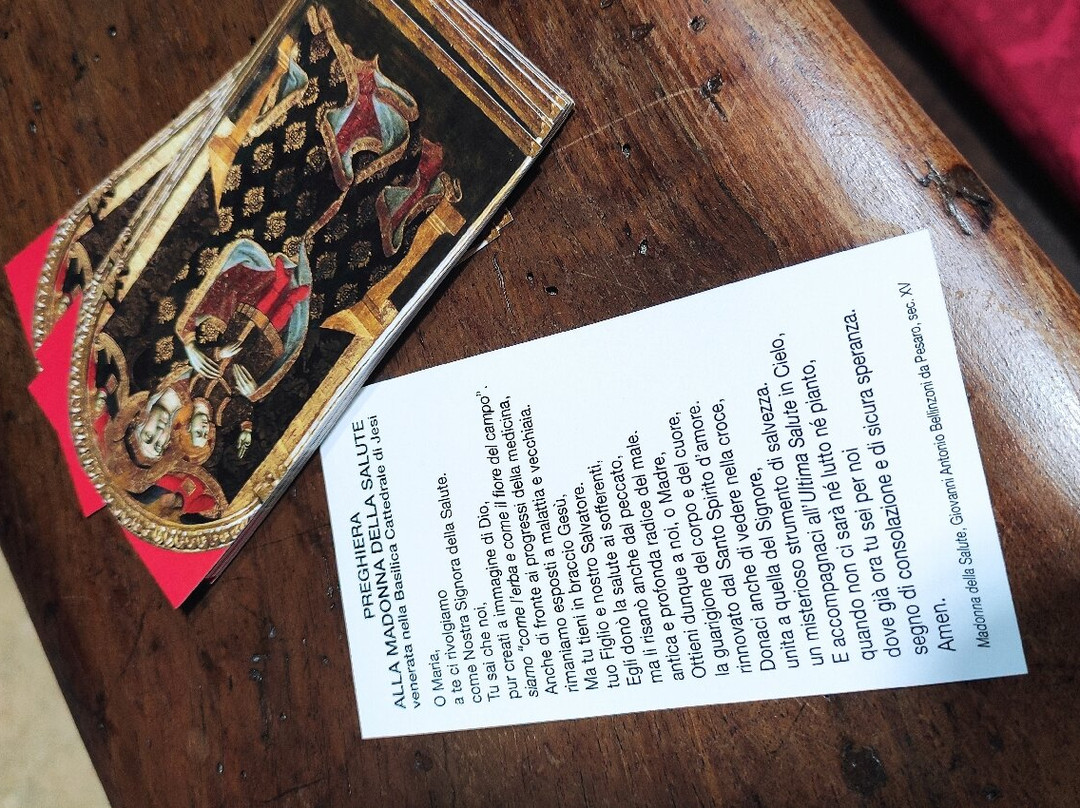 PREGHIERA
ALLA MADONNA DELLA SALUTE
venerata nella Basilica Cattedrale di Jesi
O Maria,
a te ci rivolgiamo
come Nostra Signora della Salute.
Tu sai che noi,
pur creati a immagine di Dio,
siamo “come l'erba e come il fiore del campo”.
Anche di fronte ai progressi della medicina,
rimaniamo esposti a malattia e vecchiaia.
Ma tu tieni in braccio Gesù,
tuo Figlio e nostro Salvatore.
Egli donò la salute ai sofferenti,
ma li risanò anche dal peccato,
antica e profonda radice del male.
Ottieni dunque a noi, o Madre,
la guarigione del corpo e del cuore,
rinnovato dal Santo Spirito d'amore.
Donaci anche di vedere nella croce,
unita a quella del Signore,
un misterioso strumento di salvezza.
E accompagnaci all'Ultima Salute in Cielo,
quando non ci sarà né lutto né pianto,
dove già ora tu sei per noi
segno di consolazione e di sicura speranza.
Amen.
Madonna della Salute, Giovanni Antonio Bellinzoni da Pesaro, sec. XV